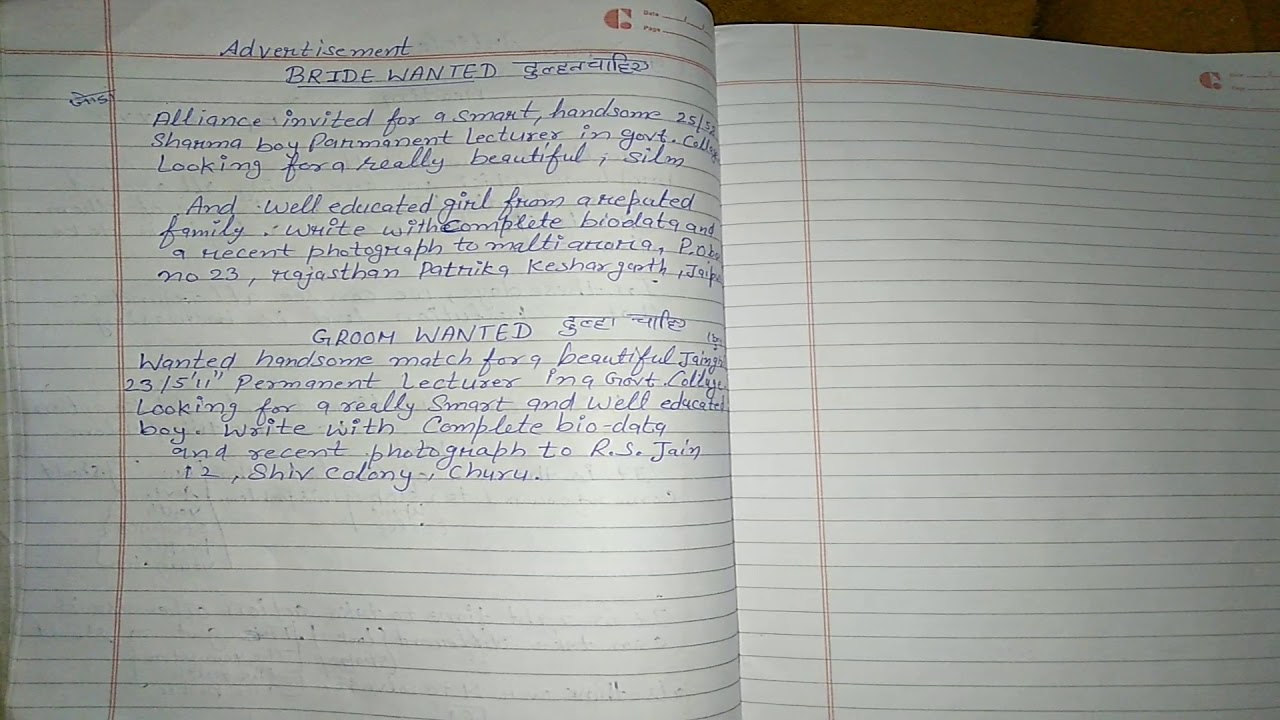 Date
Page
Advertisement
BRIDE WANTED दुल्हन चाहिए
Alliance invited for a smart, handsome
Sharma boy Parmanent Lecturer in govt. College
Looking for a really beautiful, silm
And well educated girl from a reputed
family. write with complete biodata and
a recent photograph to P.O
no 23, rajasthan Patrika , Jaipu
GROOM WANTED दुल्हा चाहिए
Wanted handsome match for a beautiful Jain
23/5'11" Permanent Lecturer in a Govt. College
Looking for a really Smart and Well educated
boy. Write with Complete bio-data
and recent photograph to R.S. Jain
12, Shiv Colony, Churu.